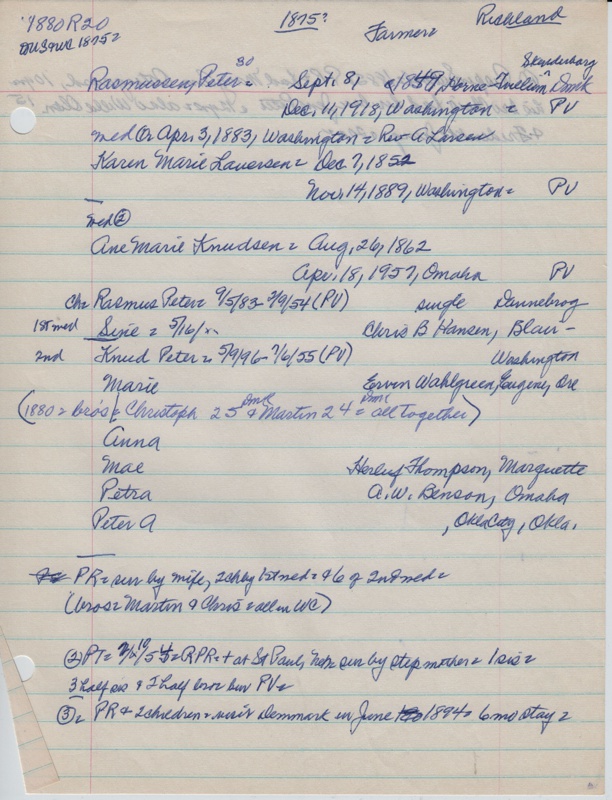 1880 R20 1875? Richland
1875=
Farmer=
30 Skanderborg
Rasmussen, Peter = Sept. 8, 1849, Horne- Dmk
Dec. 11, 1918, Washington = PV
med ① Apr. 3, 1883, Washington = Rev A Larsen
Karen Marie Lauersen = Dec. 7, 1852
Nov. 14, 1889, Washington = PV
med ②
Ane Marie Knudsen = Aug. 26, 1862
Apr. 18, 1957, Omaha PV
ch= Rasmus Peter = 9/5/83- 2/9/54 (PV) single Dannebrog
1st med Sine = 5/16/.. Chris B Hansen, Blair-
2nd Knud Peter = 5/9/96- 7/6/55 (PV) Washington
Marie Erven Wahlgreen, Eugene, Ore
(1880 = bros = Christoph 25 Dmk & Martin 24 Dmk = all together)
Anna
Mae Herluf Thompson, Marquette
Petra A. W. Benson, Omaha
Peter A , Okla City, Okla.
PR = sur by wife, 2 ch by 1st med = & 6 of 2nd med =
(bros = Martin & Chris = all in WC)
② PT = = RPR = + at St Paul, Nebr sur by step mother = 1 sis =
3 half sis & 2 half bros bur PV =
③ = PR & 2 children = visit Denmark in June 1894 = 6 mo stay =